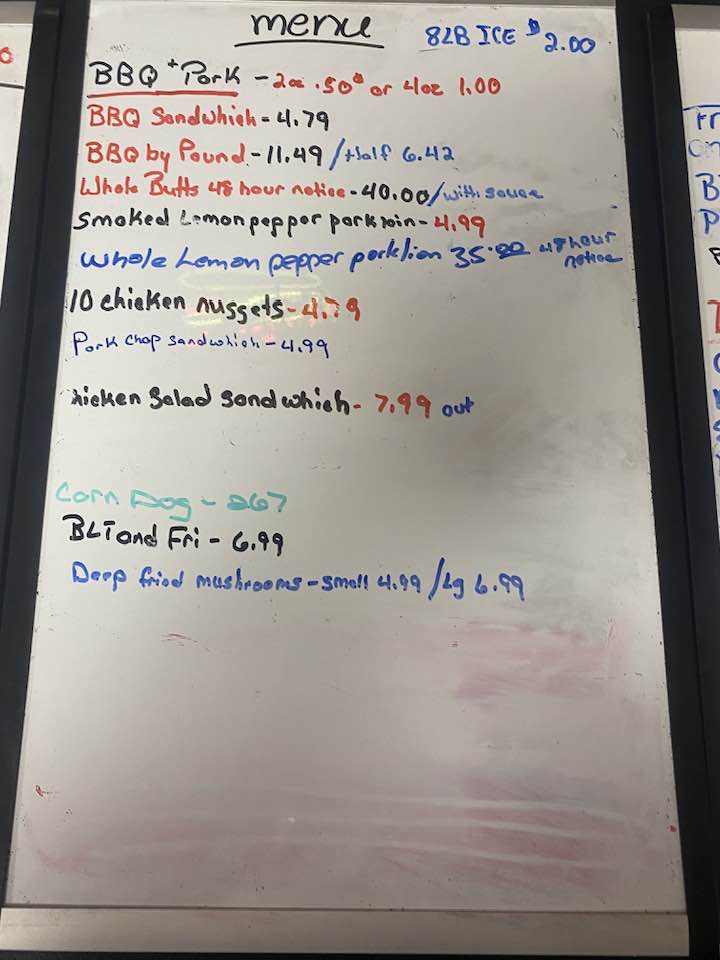 menu
8LB ICE $2.00
BBQ + Pork - 2oz .50¢ or 4oz 1.00
BBQ Sandwhich - 4.79
BBQ by Pound - 11.49 / Half 6.42
Whole Butts 48 hour notice - 40.00 / with sauce
Smoked Lemon pepper pork loin - 4.99
Whole Lemon pepper pork lion 35.00 48 hour
notice
10 chicken nuggets - 4.79
Pork chop sandwhich - 4.99
hicken Salad sandwhich - 7.99 out
Corn Dog - 267
BLT and Fri - 6.99
Deep fried mushrooms - small 4.99 / Lg 6.99